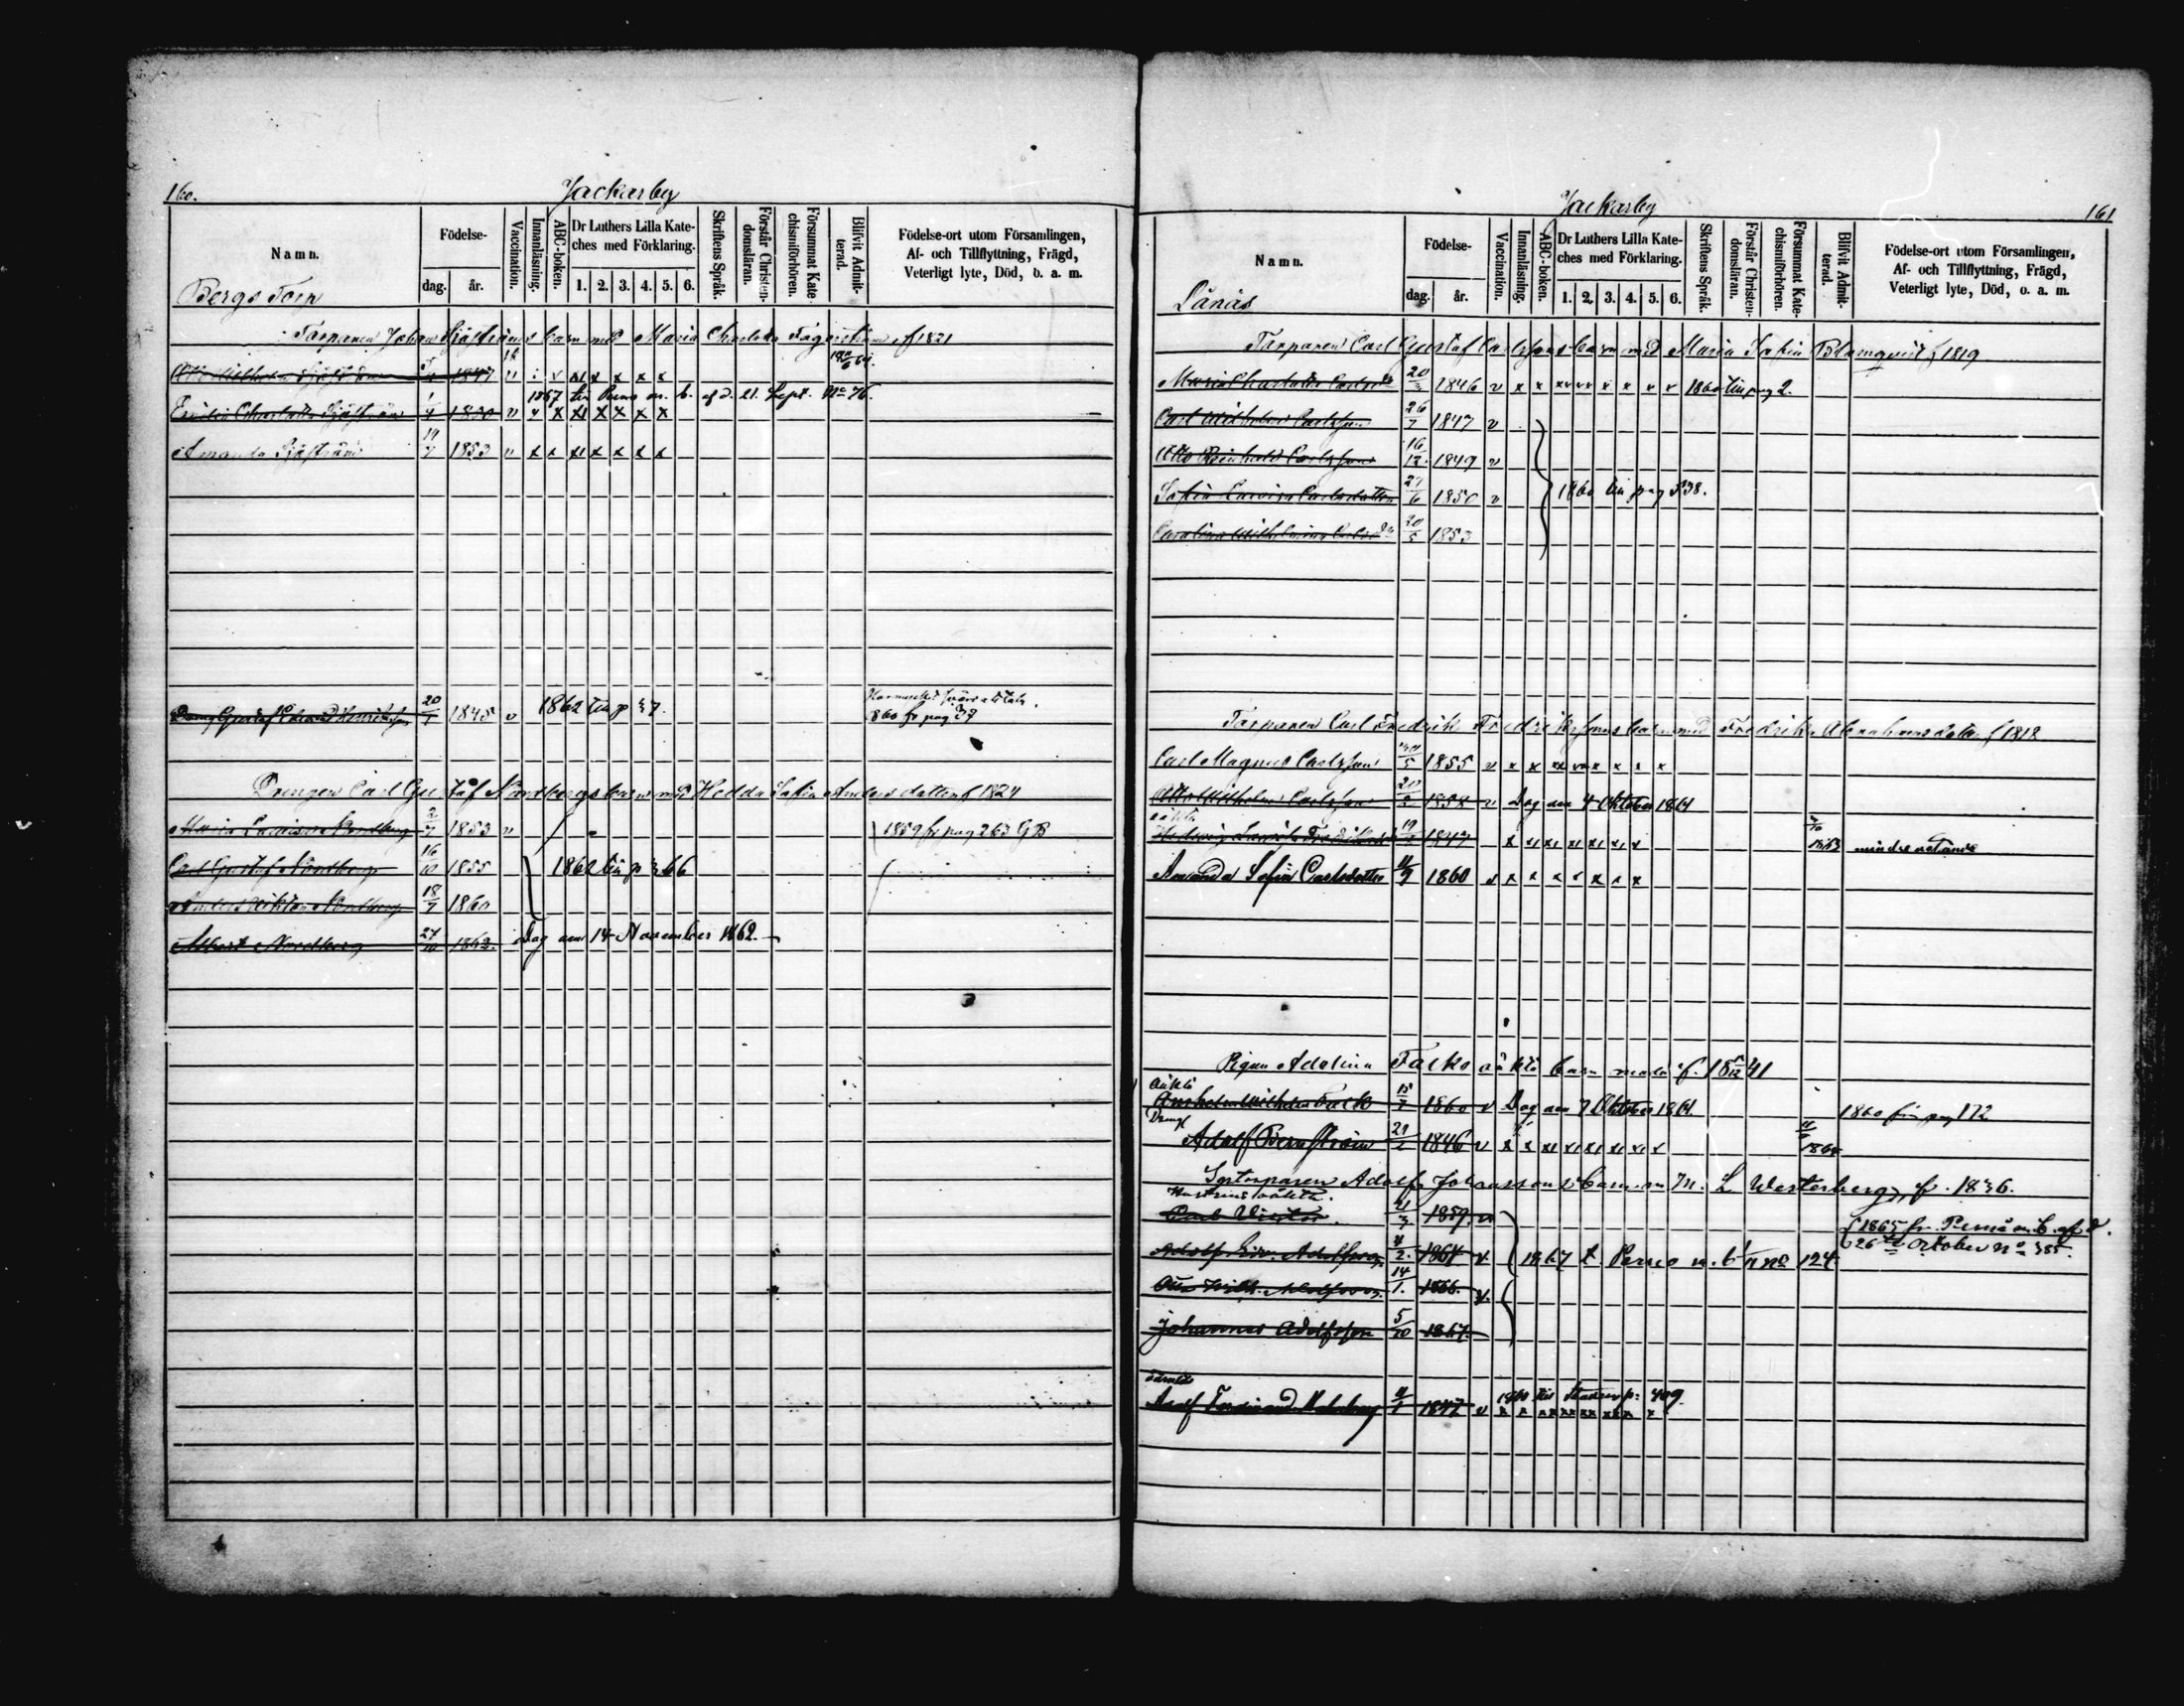 160.
Jackarby
Namn.
Födelse-
dag.
år.
Vaccination.
Innanläsning.
ABC-boken.
Dr Luthers Lilla Kate-
ches med Förklaring.
1. 2. 3. 4. 5. 6.
Skriftens Språk.
Förstår Christen-
domsläran.
Försummat Kate-
chismiförhören.
Blifvit Admit-
terad.
Födelse-ort utom Församlingen,
Af- och Tillflyttning, Frägd,
Veterligt lyte, Död, o. a. m.
Bergs Torp
Torparen Johan Sjöströms barn med Maria Charlotta f 1821
Otto Wilhelm Sjöström 1847
1867 till Perno m. b. af d. 21. Sept. No 76.
Emilia Charlotta Sjöström 1850
Amanda Sjöström 1853
Dreng Gustaf Edvard Henriksson 20/1 1845 v 1862 till p 37.
1860 fr pag 37
Drengen Carl Gustaf Nordbergs barn med Hedda Sofia Andersdotter f 1824
Maria Lovisa Nordberg 2/7 1853 v 1859 fr pag 263 GB
Carl Gustaf Nordberg 16/10 1855 1862 till p 366
Anders Viktor Nordberg 18/7 1860
Albert Nordberg 27/10 1862. Dog den 14 November 1862.
161
Jackarby
Namn.
Födelse-
dag.
år.
Vaccination.
Innanläsning.
ABC-boken.
Dr Luthers Lilla Kate-
ches med Förklaring.
1. 2. 3. 4. 5. 6.
Skriftens Språk.
Förstår Christen-
domsläran.
Försummat Kate-
chismiförhören.
Blifvit Admit-
terad.
Födelse-ort utom Församlingen,
Af- och Tillflyttning, Frägd,
Veterligt lyte, Död, o. a. m.
Lånäs
Torparen Carl Gustaf Carlssons barn med Maria Sofia Blomquist f 1819
Maria Charlotta Carlsdr 20/3 1846 v x x xx xx x x x x 1860 till pag 2.
Carl Wilhelm Carlsson 26/7 1847 v
Otto Reinhold Carlsson 16/12. 1849 v
Sofia Lovisa Carlsdotter 27/6 1850 v 1860 till pag 338.
Carolina Wilhelmina Carlsdr 20/5 1853
Torparen Carl Fredrik Fredrikssons barn med Fredrika Abrahamsdotter f 1818
Carl Magnus Carlsson 1855 v x x xx xx x x x
Otto Wilhelm Carlsson 20/2 1858 v Dog den 4 Oktober 1861
oäkta
Hedvig Lovisa 19 1847 1863
Amanda Sofia Carlsdotter 11/9 1860 v x x x x x x x
Pigan Adolina Falks oäkta barn f. 18 5/12 41
oäkta
Anshelm Wilhelm Falk 15/7 1860 v Dog den 7 Oktober 1861 1860 fr pag 172
Dreng
Adolf Bernström 29/2 1846 v 1864
Adolf Johanssons barn m M. L. Westerberg, f. 1836.
Hustruns oäkta.
Carl Viktor. 21/7 1859. v
1865 fr. Pernå m. b. af d.
26te October No 385.
Adolf Adolfsson 4/2. 1864 v. 1867 t. Perno m. b No 124
Adolfsson 14/1. 1866. v.
Johannes Adolfsson 5/10 1867.
Adolf Ferdinand Malmberg 4/1 1847 v
409.